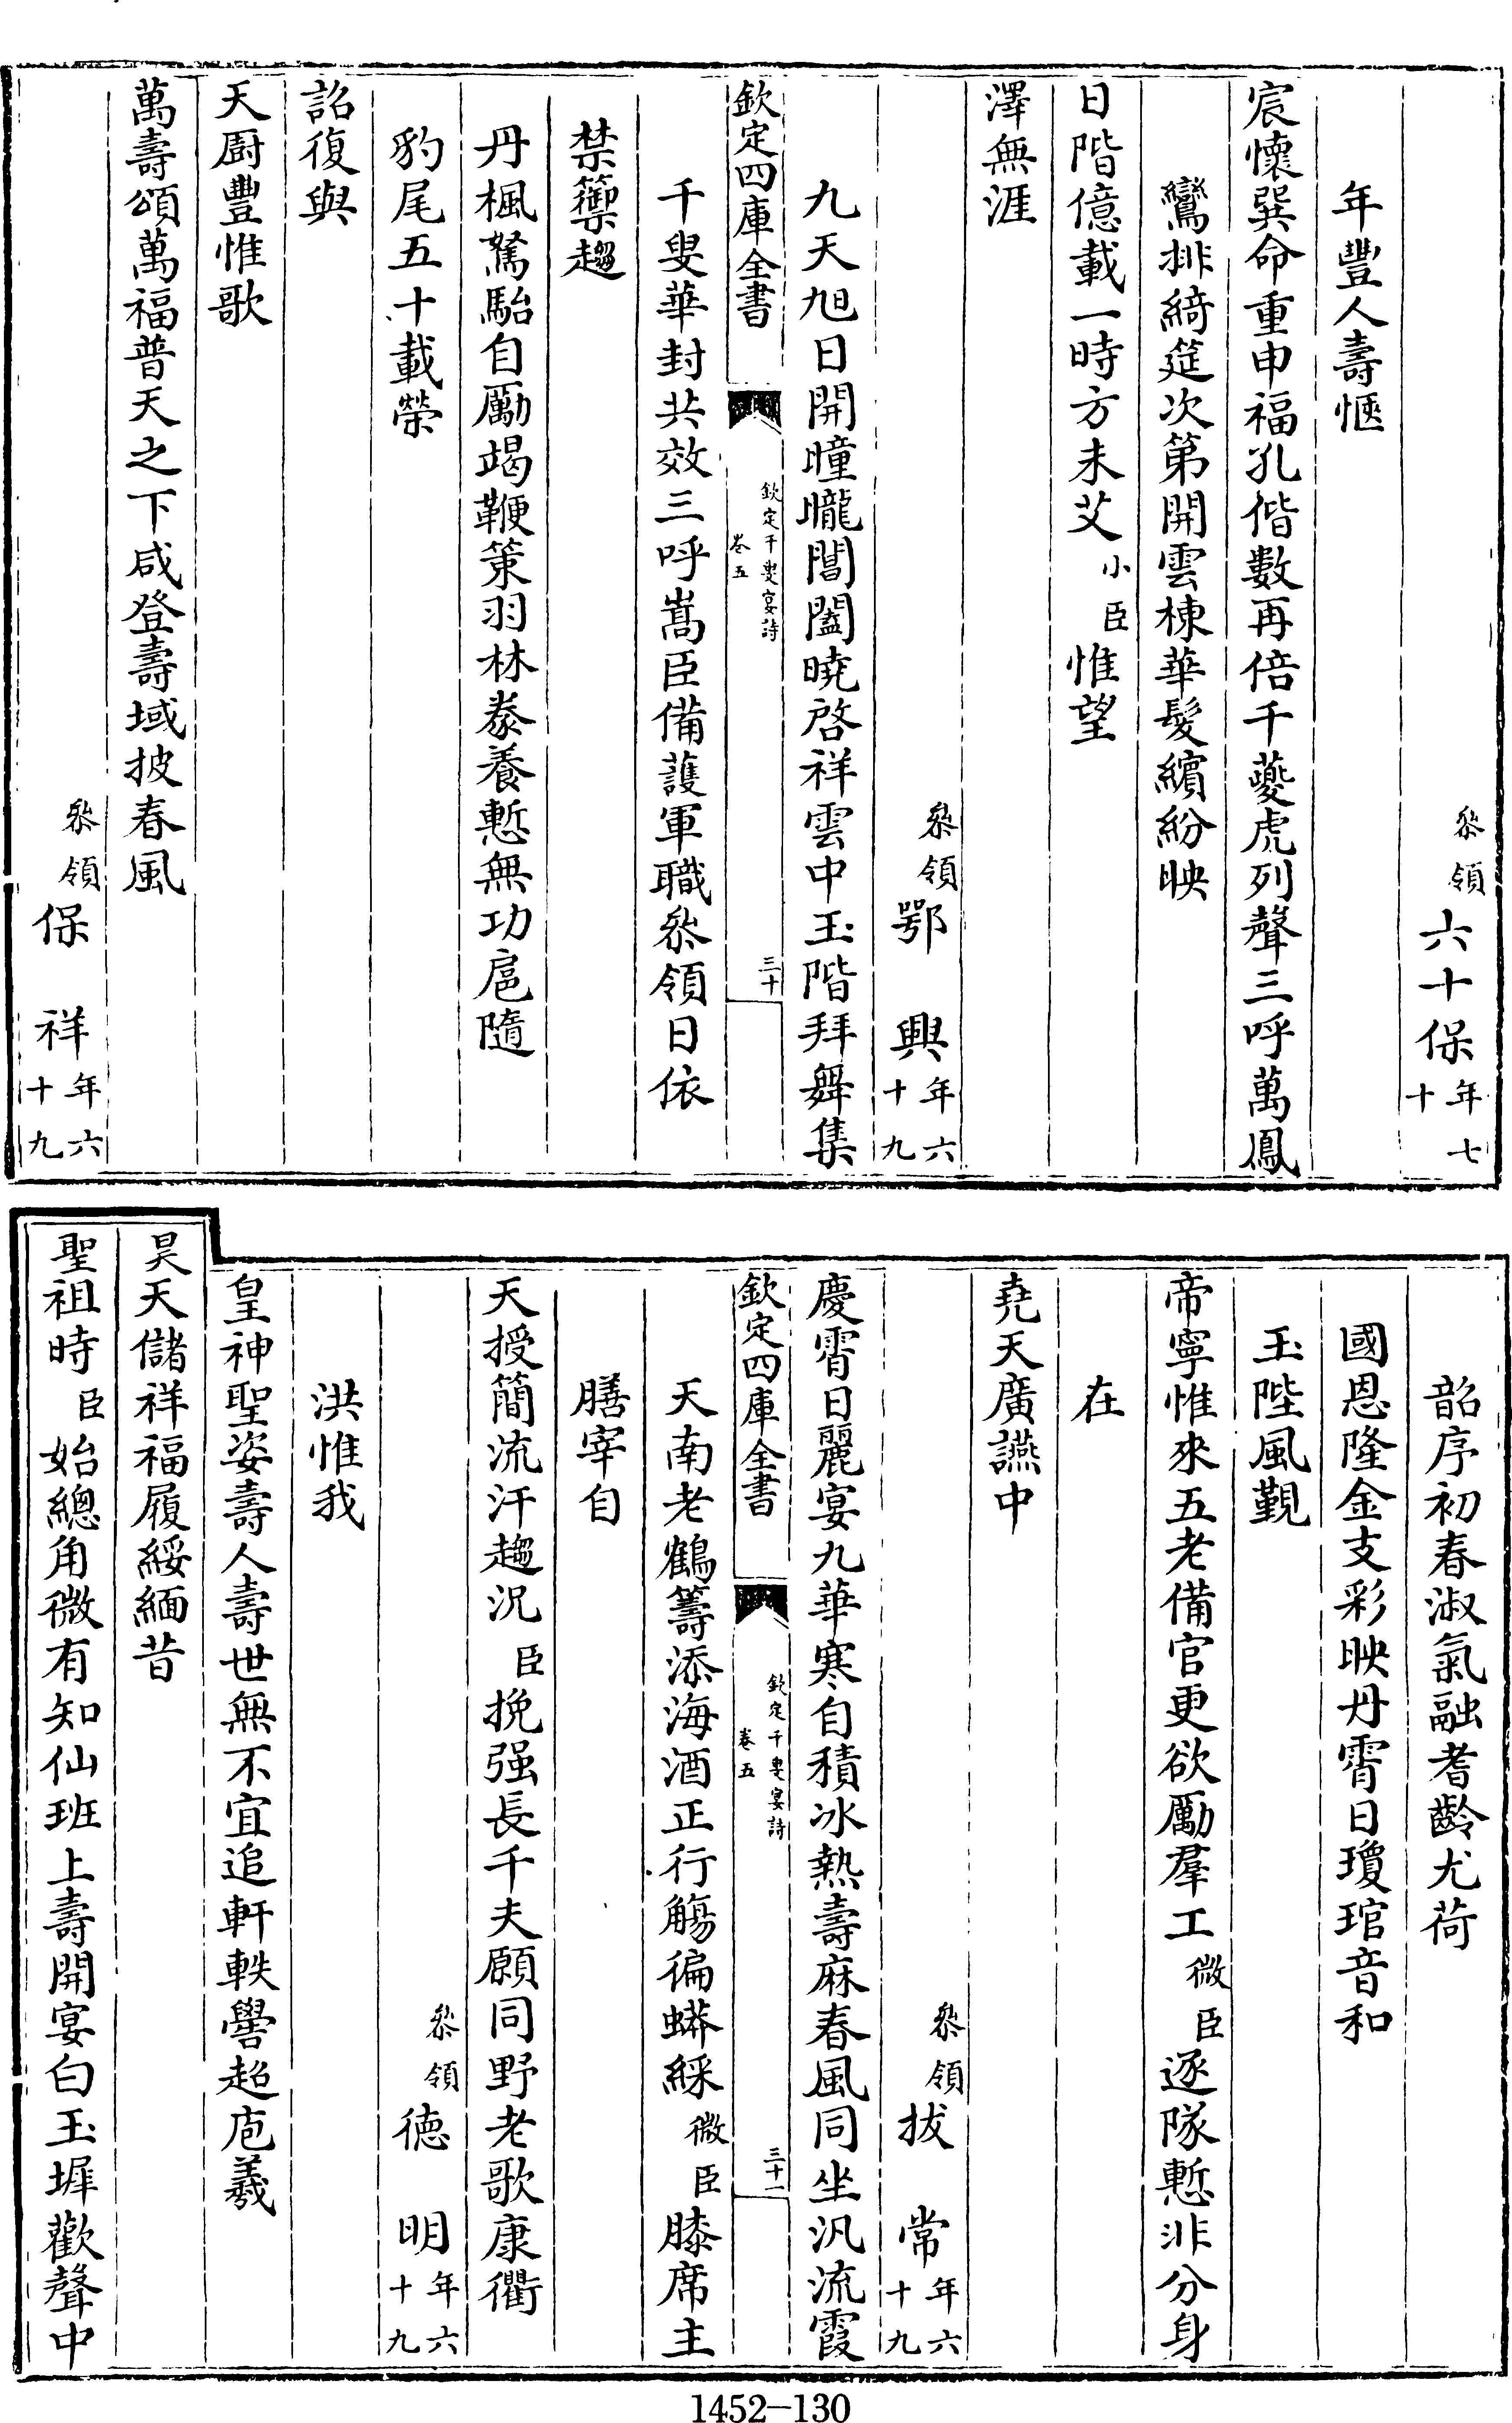 叅領六十保年七十
年豐人壽愜
宸懷巽命重申福孔偕數再倍千夔虎列聲三呼萬鳳
鸞排綺筵次第開雲棟華髮繽紛映
日階億載一時方未艾小臣惟望
澤無涯
叅領鄂 興年六十九
九天旭日開曈曨閶闔曉啓祥雲中玉階拜舞集
欽定四庫全書
欽定千叟宴詩
卷五
三十
千叟華封共效三呼嵩臣備護軍職叅領日依
禁籞趨
丹楓駑駘自勵竭鞭策羽林豢養慙無功扈隨
豹尾五十載榮
詔復與
天厨豐惟歌
萬壽頌萬福普天之下咸登壽域披春風
叅領保 祥年六十九
韶序初春淑氣融耆齡尤荷
國恩隆金支彩映丹霄日瓊琯音和
玉陛風覲
帝寧惟來五老備官更欲勵羣工微臣逐隊慙非分身
在
堯天廣讌中
叅領拔 常年六十九
慶霄日麗宴九華寒自積冰熱壽麻春風同坐汎流霞
欽定四庫全書
欽定千叟宴詩
卷五
三十一
天南老鶴籌添海酒正行觴徧蟒綵微臣膝席主
膳宰自
天授簡流汗趨況臣挽强長千夫願同野老歌康衢
叅領德 明年六十九
洪惟我
皇神聖姿壽人壽世無不宜追軒軼嚳超庖羲
昊天儲祥福履綏緬昔
聖祖時臣始總角微有知仙班上壽開宴白玉墀歡聲中
1452-130